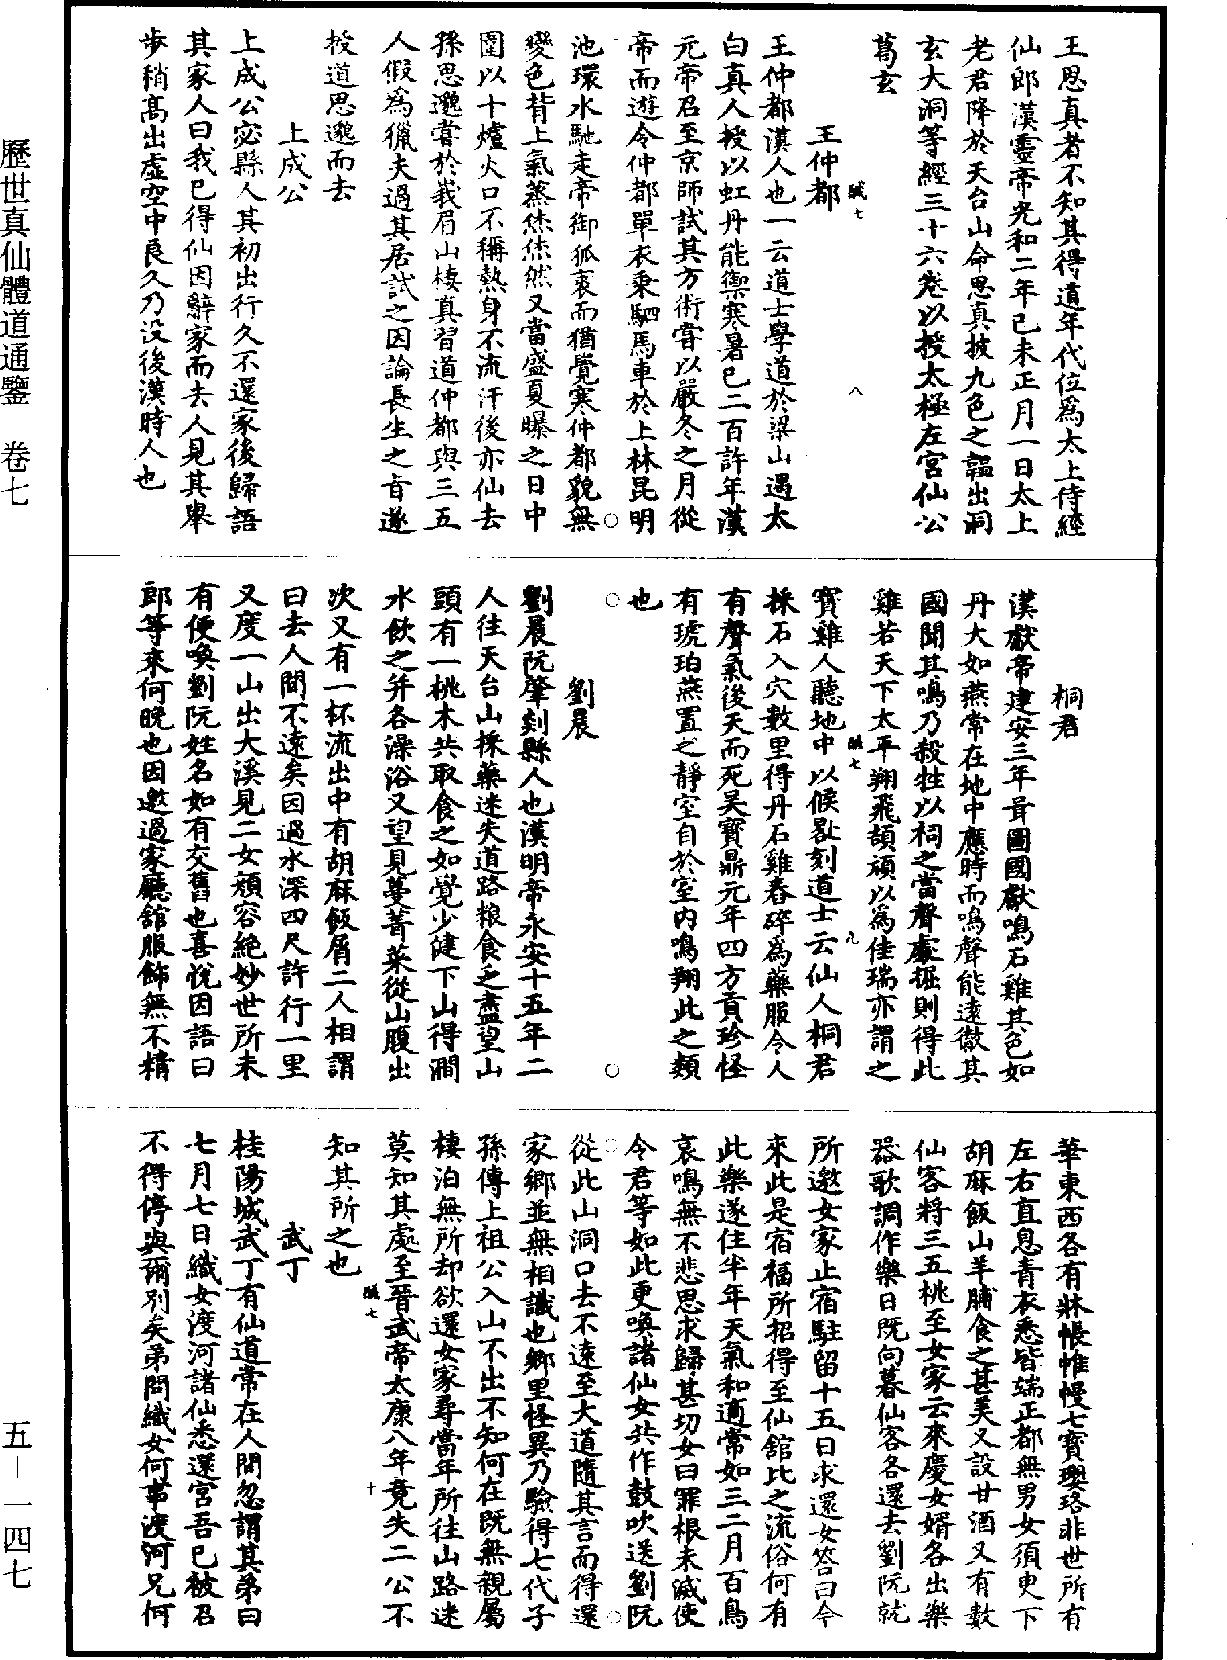 歷世真仙體道通鑒　卷七
五-一四七
王思真者不知其得道年代位為太上侍經
仙郎漢靈帝光和二年己未正月一日太上
老君降於天台山命思真披九色之韞出洞
玄大洞等經三十六卷以授太極左宮仙公
葛玄
王仲都
王仲都漢人也一云道士學道於梁山遇太
白真人授以虹丹能禦寒暑已二百許年漢
元帝召至京師試其方術嘗以嚴冬之月從
帝而遊令仲都單衣乘駟馬車於上林昆明
池環水馳走帝御狐裘而猶覺寒仲都貌無
變色背上氣蒸焦焦然又當盛夏曝之日中
圍以十爐火口不稱熱身不流汗後亦仙去
孫思邈嘗於峩眉山棲真習道仲都與三五
人假為獵夫過其居試之因論長生之旨遂
授道思邈而去
上成公
上成公宓縣人其初出行久不還家後歸語
其家人曰我已得仙因辭家而去人見其舉
步稍高出虛空中良久乃没後漢時人也
桐君
漢獻帝建安三年胥圖國獻鳴石雞其色如
丹大如燕常在地中應時而鳴聲能遠徹其
國聞其鳴乃殺牲以祠之當聲處掘則得此
雞若天下太平翔飛頡頏以為佳瑞亦謂之
寶雞人聽地中以候晷刻道士云仙人桐君
採石入穴數里得丹石雞舂碎為藥服令人
有聲氣後天而死吳寶鼎元年四方貢珍怪
有琥珀燕置之靜室自於室内鳴翔此之類
也
劉晨
劉晨阮肇剡縣人也漢明帝永安十五年二
人往天台山採藥迷失道路粮食乏盡望山
頭有一桃木共取食之如覺少健下山得澗
水飲之并各澡浴又望見蔓菁菜從山腹出
次又有一杯流出中有胡麻飯屑二人相謂
曰去人間不遠矣因過水深四尺許行一里
又度一山出大溪見二女顏容絶妙世所未
有便喚劉阮姓名如有交舊也喜悅因語曰
郎等來何晚也因邀過家廳舘服飾無不精
華東西各有牀帳帷幔七寶瓔珞非世所有
左右直息青衣悉皆端正都無男女須臾下
胡麻飯山羊脯食之甚美又設甘酒又有數
仙客將三五桃至女家云來慶女婿各出樂
器歌調作樂日既向暮仙客各還去劉阮就
所邀女家止宿駐留十五日求還女答曰今
來此是宿福所招得至仙舘比之流俗何有
此樂遂住半年天氣和適常如三二月百鳥
哀鳴無不悲思求歸甚切女曰罪根未滅使
令君等如此更喚諸仙女共作鼓吹送劉阮
從此山洞口去不遠至大道隨其言而得還
家鄉並無相識也鄉里怪異乃驗得七代子
孫傳上祖公入山不出不知何在既無親屬
棲泊無所却欲還女家尋當年所往山路迷
莫知其處至晉武帝太康八年竟失二公不
知其所之也
武丁
桂陽城武丁有仙道常在人間忽謂其弟曰
七月七日織女渡河諸仙悉還宮吾已被召
不得停與爾別矣弟問織女何事渡河兄何